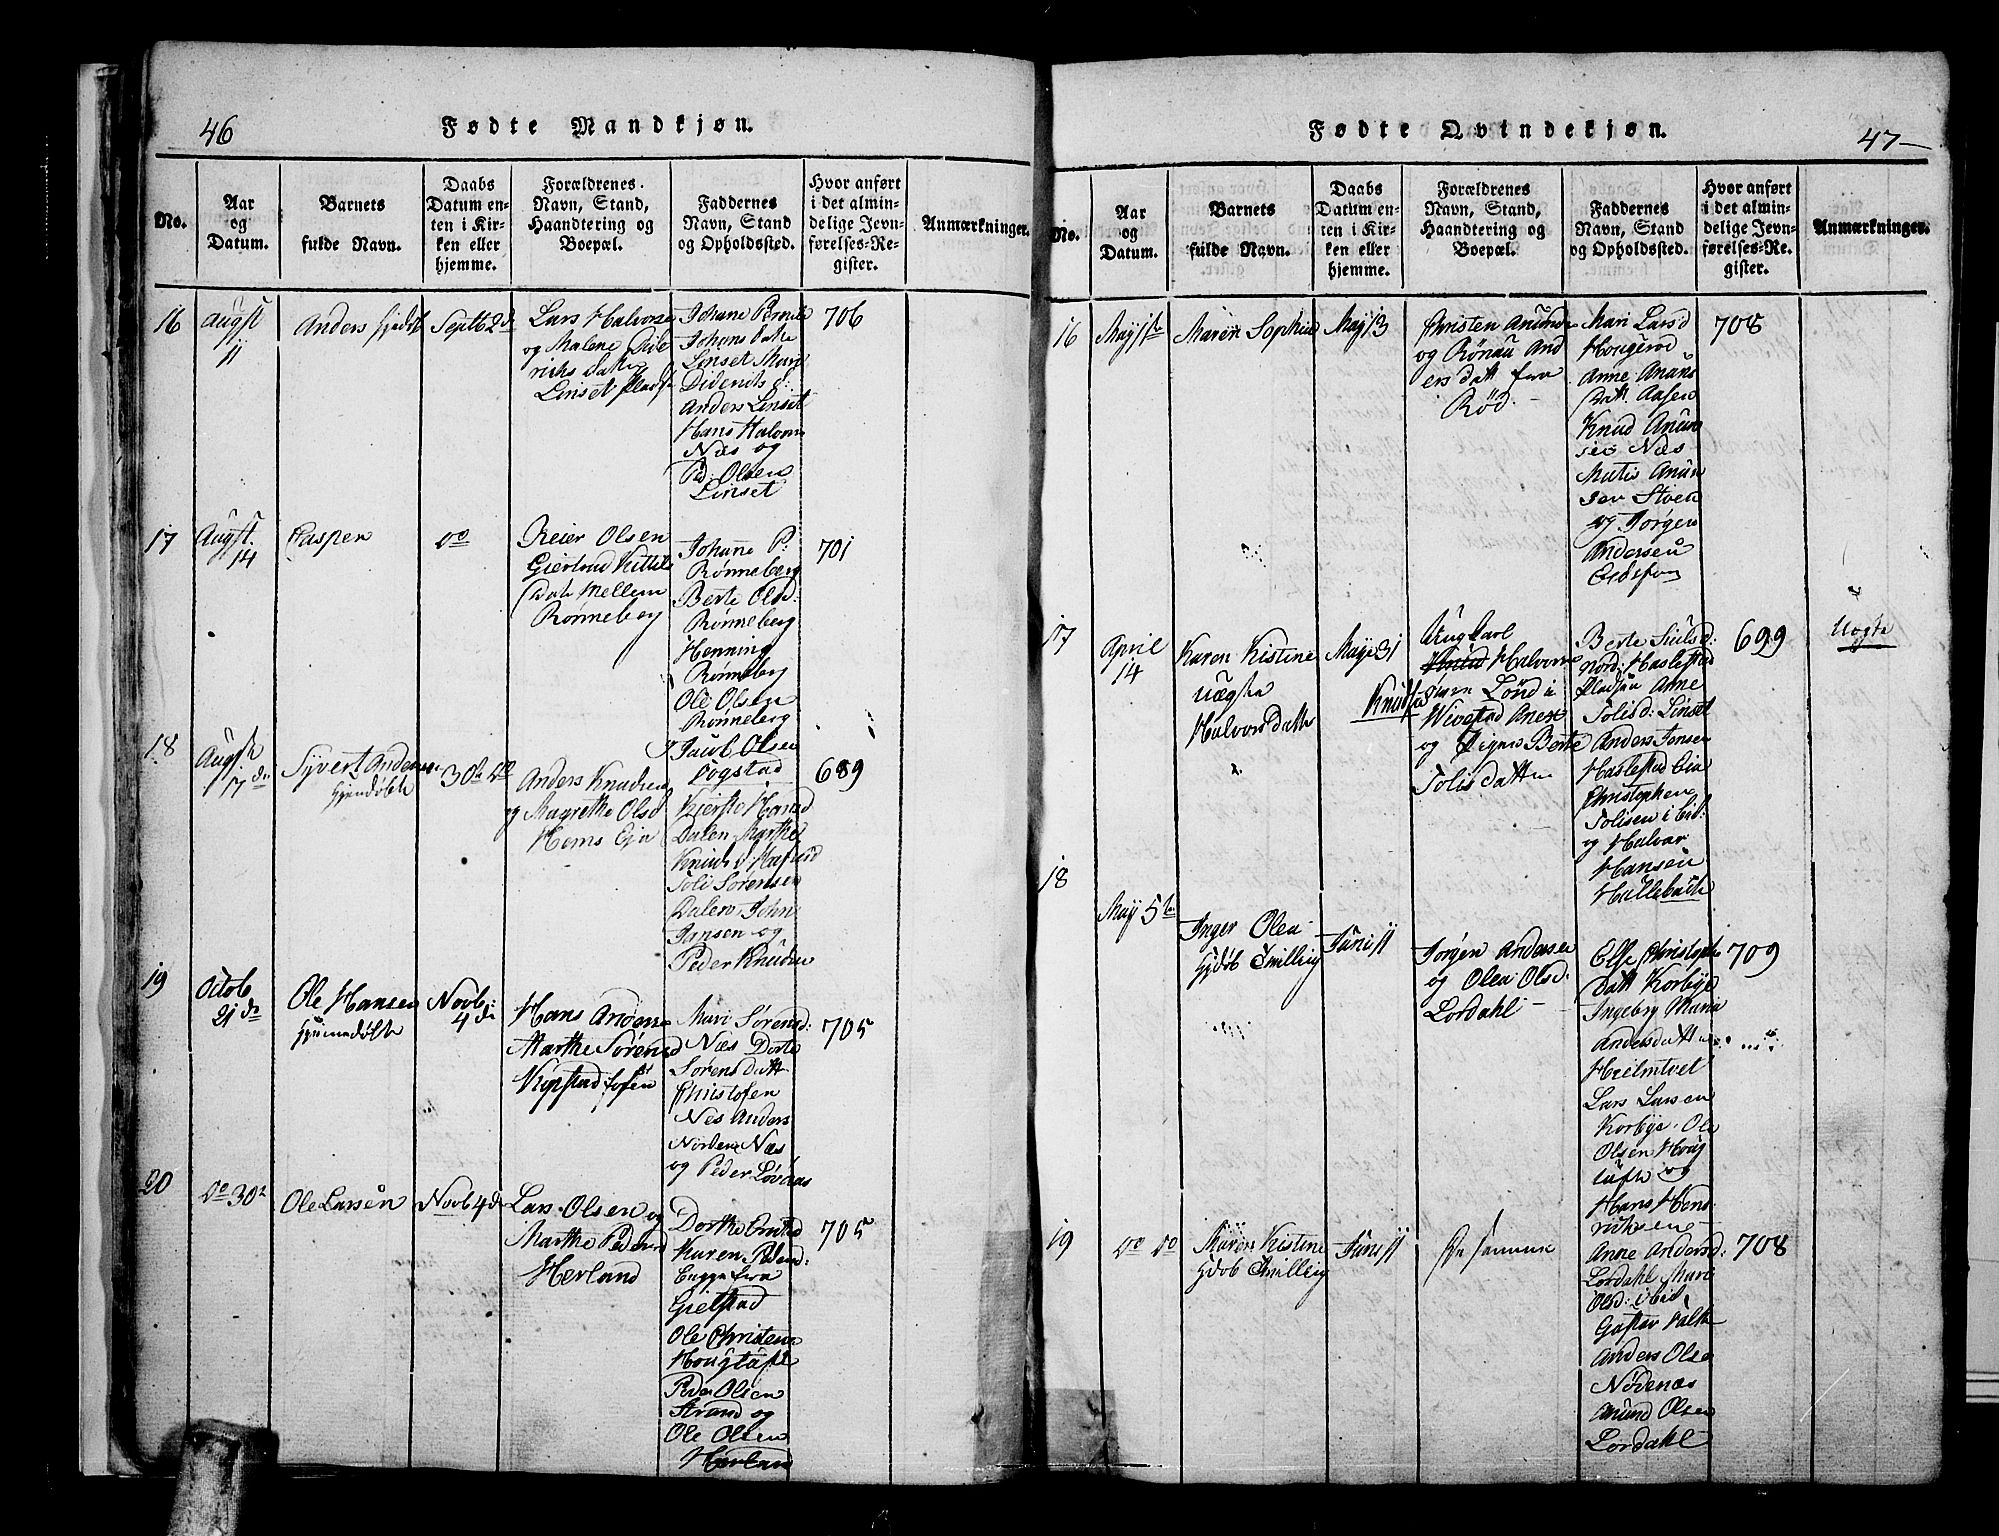 46
Fødte Mandkjøn.
No.
Aar
og
Datum.
Barnets
fulde Navn.
Daabs
Datum en-
ten i Kir-
ken eller
hjemme.
Forældrenes
Navn, Stand,
Haandtering og
Boepæl.
Faddernes
Navn, Stand
og Opholdssted.
Hvor anført
i det almin-
delige Jevn-
førelses-Re-
gister.
Anmærkninger.
16
Augst
11
Anders
Septb 2d
Lars Halvorsen
og Malene
Linset
Johane
Johans datt
Linset Mari
Diderichs d:
Anders Linset
Hans Halvors
Næs og
Pd: Olsen
Linset
706
17
Augst.
14
Casper
do
Reier Olsen
Giertrud Kittils
Datt Mellem
Rønneberg
Johane P:
Rønneberg
Berte Olsd:
Rønneberg
Henning
Rønneberg
Ole Olsen
Rønneberg
701
18
Augst
17 de
Syvert Andersen
hjemdøbt
30
Anders Knudsen
og Magrethe Olsd
Hems Eja
Jacob Olsen
Fogstad
Kierste Hansd
Dalen Marthe
Knuds d:
Toli Sørensen
Dalen John
Jansen og
Peder Knudsen
689
19
Octob
21 de
Ole Hansen
hjemmedøbt
Novb:
4 de
Hans Anders
Marthe Sørensd
Mari Sørensd:
Næs Dorte
Sørens datt
Christofen
Nes Anders
Norden Næs
og Peder Løvaas
705
20
do 30
Ole Larsen
Novb 4 de
Lars Olsen og
Marthe Pedersd
Herland
Dorthe
Karen Pedersd:
Bugge fra
Gielstad
Ole Christens
Hougtuft
Peder Olsen
Strand og
Ole Olsen
Herland
705
47
Fødte Qvindekjøn.
No.
Aar
og
Datum.
Barnets
fulde Navn.
Daabs
Datum en-
ten i Kir-
ken eller
hjemme.
Forældrenes
Navn, Stand,
Haandtering og
Boepæl.
Faddernes
Navn, Stand
og Opholdssted.
Hvor anført
i det almin-
delige Jevn-
førelses-Re-
gister.
Anmærkninger.
16
May 1ste
Maren Sophia
May 13
Christen Anuns
og Rønau And
ers datt fra
Rød.
Mari Larsd
Hougerød
Anne Anuns
Datt. Aasen
Knud Anun
sen Næs
Anun
sen Støen
og Jørgen
Andersen
708
17
April
14
Karen Kistine
uægte
Halvorsdatter
May 31
Ungkarl
Halvor
i
og Pigen Berte
Tolisdatter
Berte
nord: Haslestad
Anne
Tolisd: Linset
Anders Jensen
Haslestad Eia
Christophen
Tolisen i bid:
og Halvor
Hansen
699
Uægte
18
May 5te
Inger Olea
Tvilling
Juni 11
Jørgen Andersen
og Olea Olsd:
Lørdahl
Else Christophe
datt Korbye
Ingeborg Maria
Andersdatter
Hielmtvet
Lars Larsen
Korbye. Ole
Olsen Houg
tuft og
Hans Hend
richsen
709
19
do do
Maren Kistine
Tvilling
Juni 11
De samme
Anne Andersd:
Lørdahl Mari
Olsd: ibid
Gustav Falk
Anders Olse
Nødenæs
Anund Olsen
Lørdahl
708